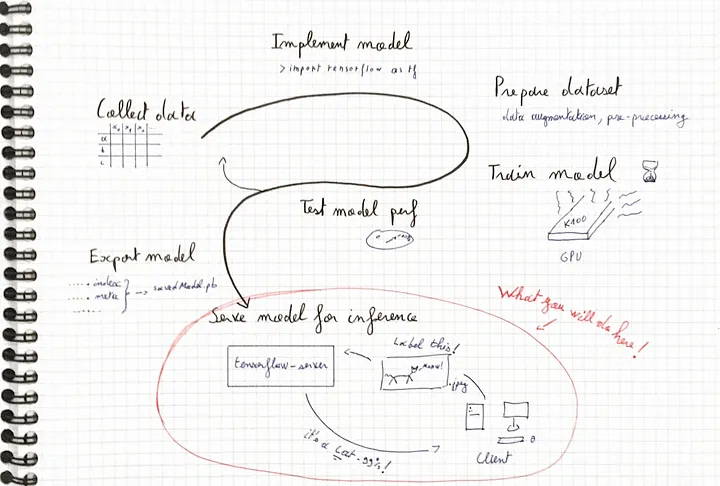 Implement model
> import tensorflow as tf
Collect data
x₀ x₁ x₂ ...
a
b
c
Prepare dataset
data augmentation, pre-processing
Train model
K100
GPU
Test model perf
Export model
..... index
..... meta
.......
→ savedModel.pb
What you will do here!
Serve model for inference
tensorflow-server
Label this!
meow!
.jpeg
it's a cat. 99%!
Client